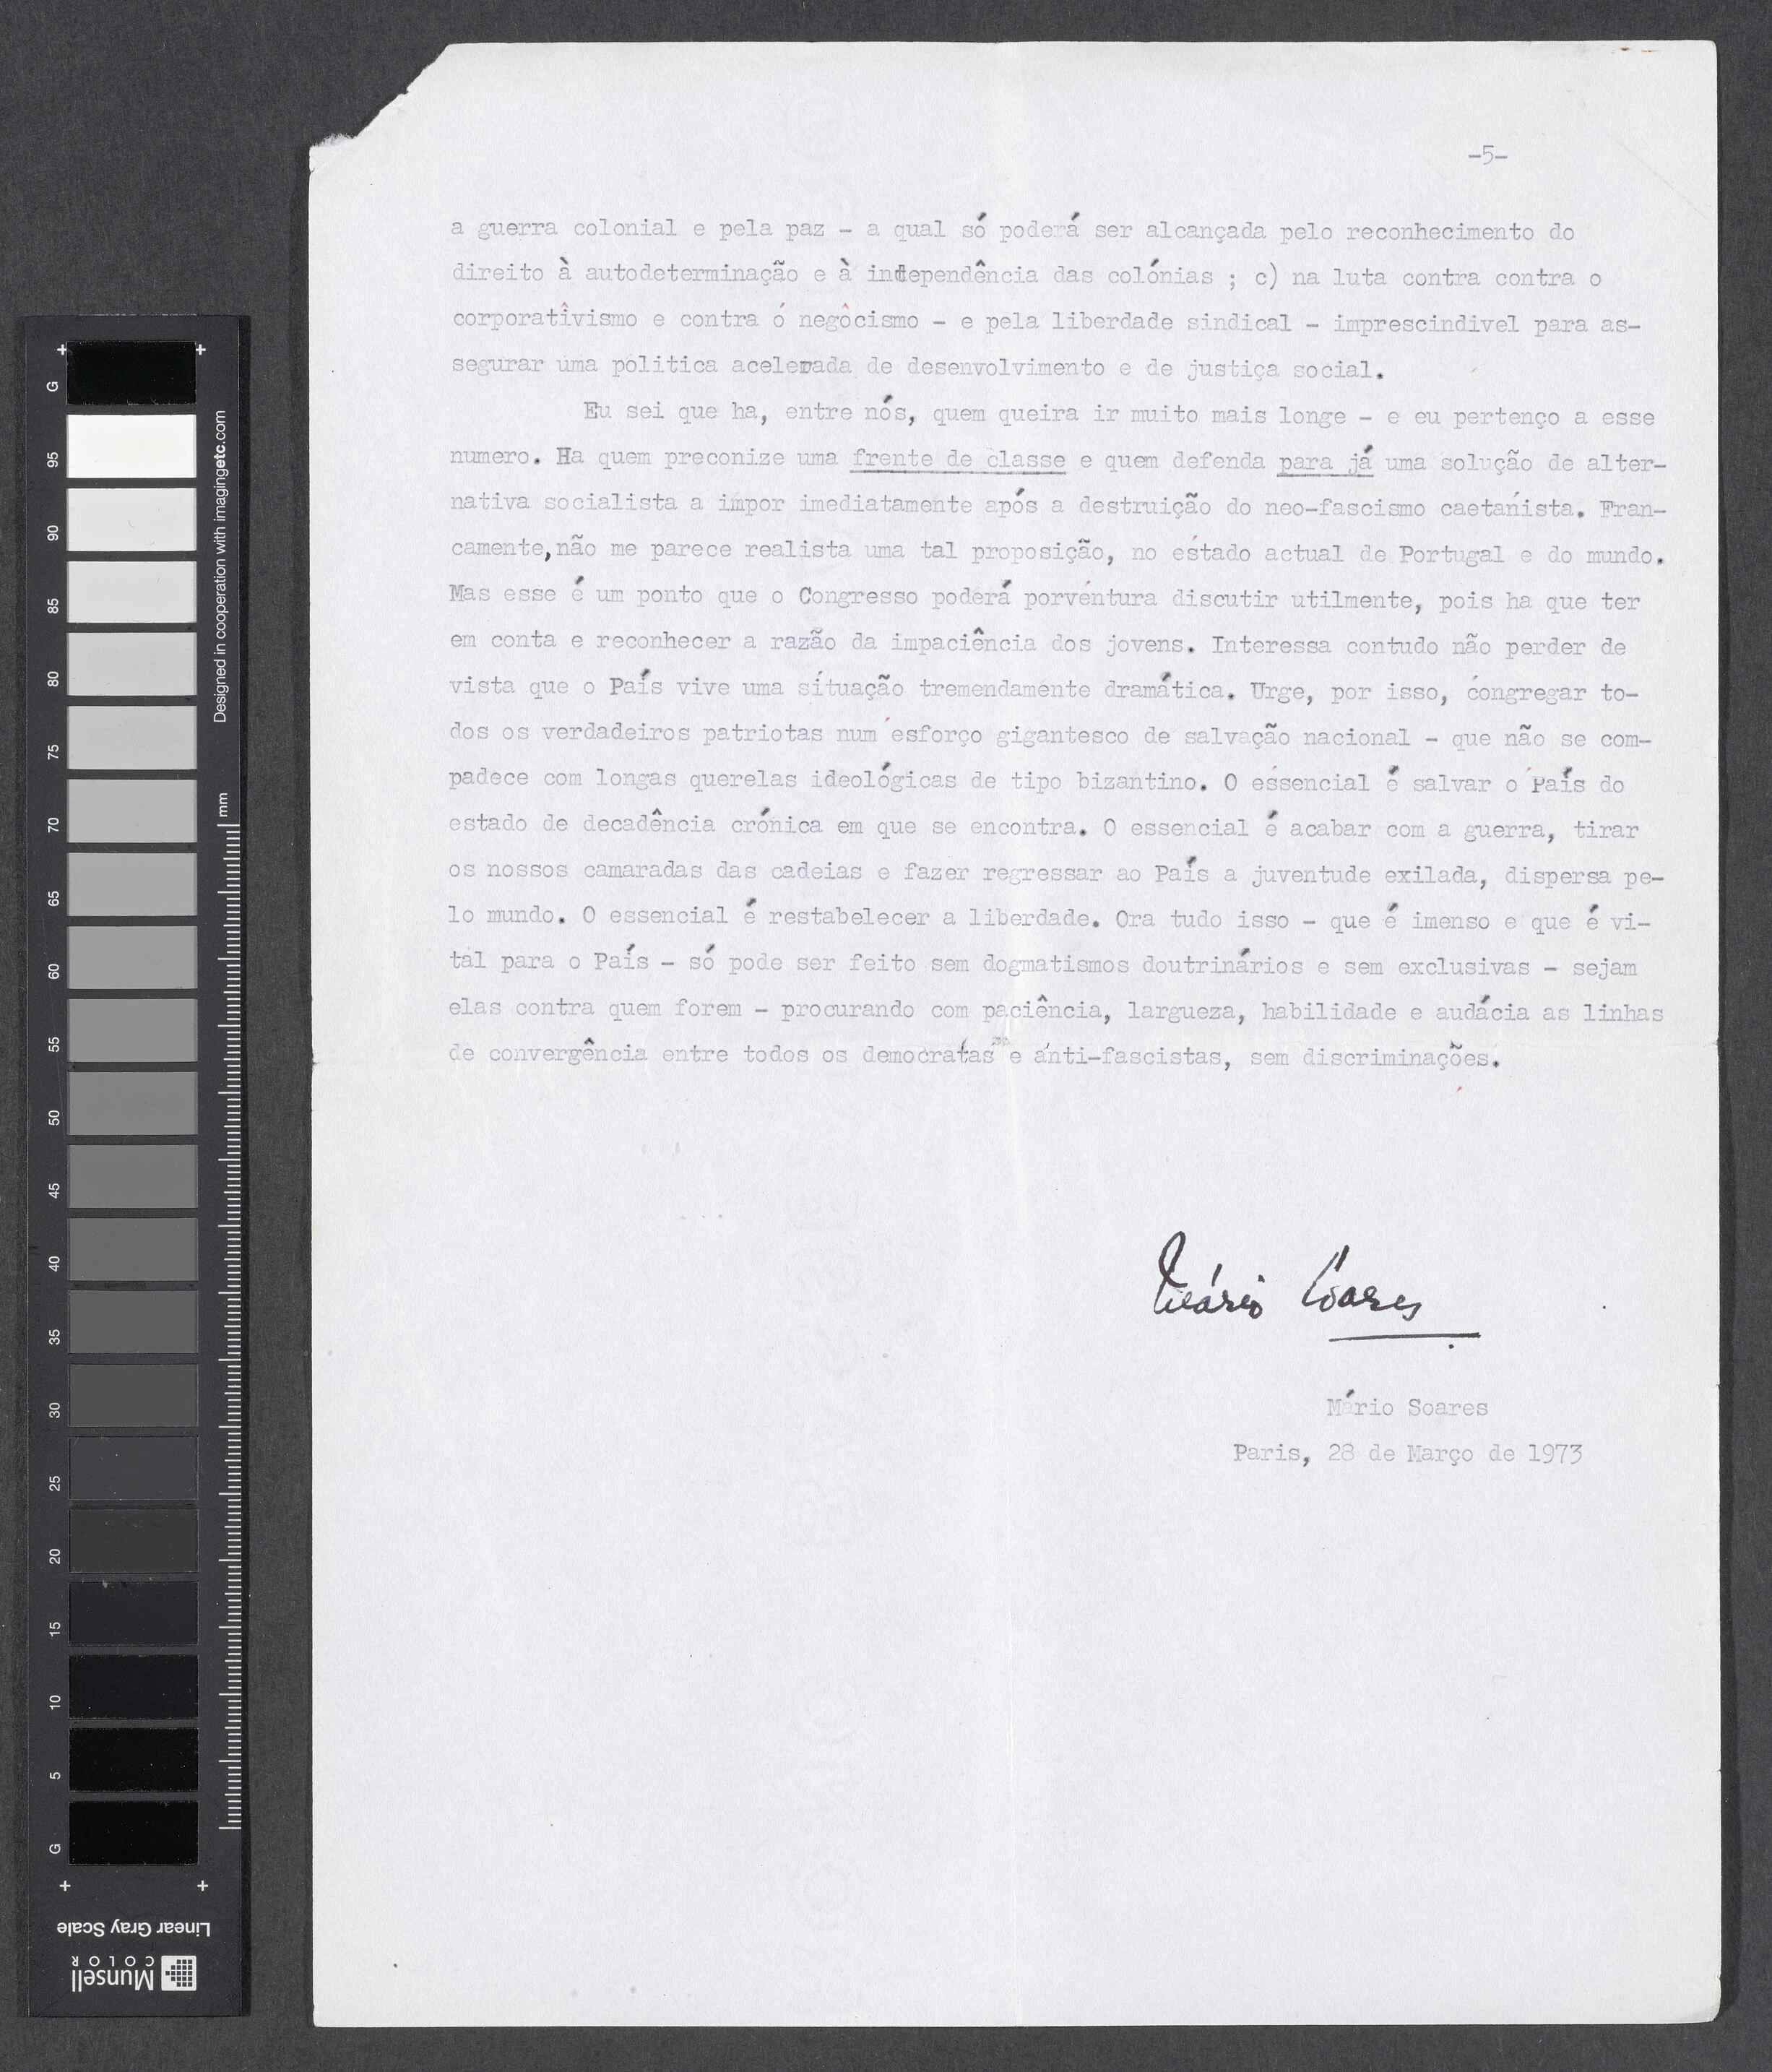 -5-
a guerra colonial e pela paz - a qual só poderá ser alcançada pelo reconhecimento do
direito à autodeterminação e à independência das colónias ; c) na luta contra contra o
corporatîvismo e contra ó negôcismo - e pela liberdade sindical - imprescindivel para as-
segurar uma politica acelerada de desenvolvimento e de justiça social.
Eu sei que ha, entre nós, quem queira ir muito mais longe - e eu pertenço a esse
numero. Ha quem preconize uma frente de classe e quem defenda para já uma solução de alter-
nativa socialista a impor imediatamente após a destruição do neo-fascismo caetanista. Fran-
camente, não me parece realista uma tal proposição, no estado actual de Portugal e do mundo.
Mas esse é um ponto que o Congresso poderá porventura discutir utilmente, pois ha que ter
em conta e reconhecer a razão da impaciência dos jovens. Interessa contudo não perder de
vista que o País vive uma situação tremendamente dramática. Urge, por isso, congregar to-
dos os verdadeiros patriotas num esforço gigantesco de salvação nacional - que não se com-
padece com longas querelas ideológicas de tipo bizantino. O essencial é salvar o País do
estado de decadência crónica em que se encontra. O essencial é acabar com a guerra, tirar
os nossos camaradas das cadeias e fazer regressar ao País a juventude exilada, dispersa pe-
lo mundo. O essencial é restabelecer a liberdade. Ora tudo isso - que é imenso e que é vi-
tal para o País - só pode ser feito sem dogmatismos doutrinários e sem exclusivas - sejam
elas contra quem forem - procurando com paciência, largueza, habilidade e audácia as linhas
de convergência entre todos os democratas e anti-fascistas, sem discriminações.
Mário Soares
Mário Soares
Paris, 28 de Março de 1973
G
95
90
85
80
75
70
65
60
55
50
45
40
35
30
25
20
15
10
5
G
Designed in cooperation with imagingetc.com
mm
Linear Gray Scale
Munsell
COLOR